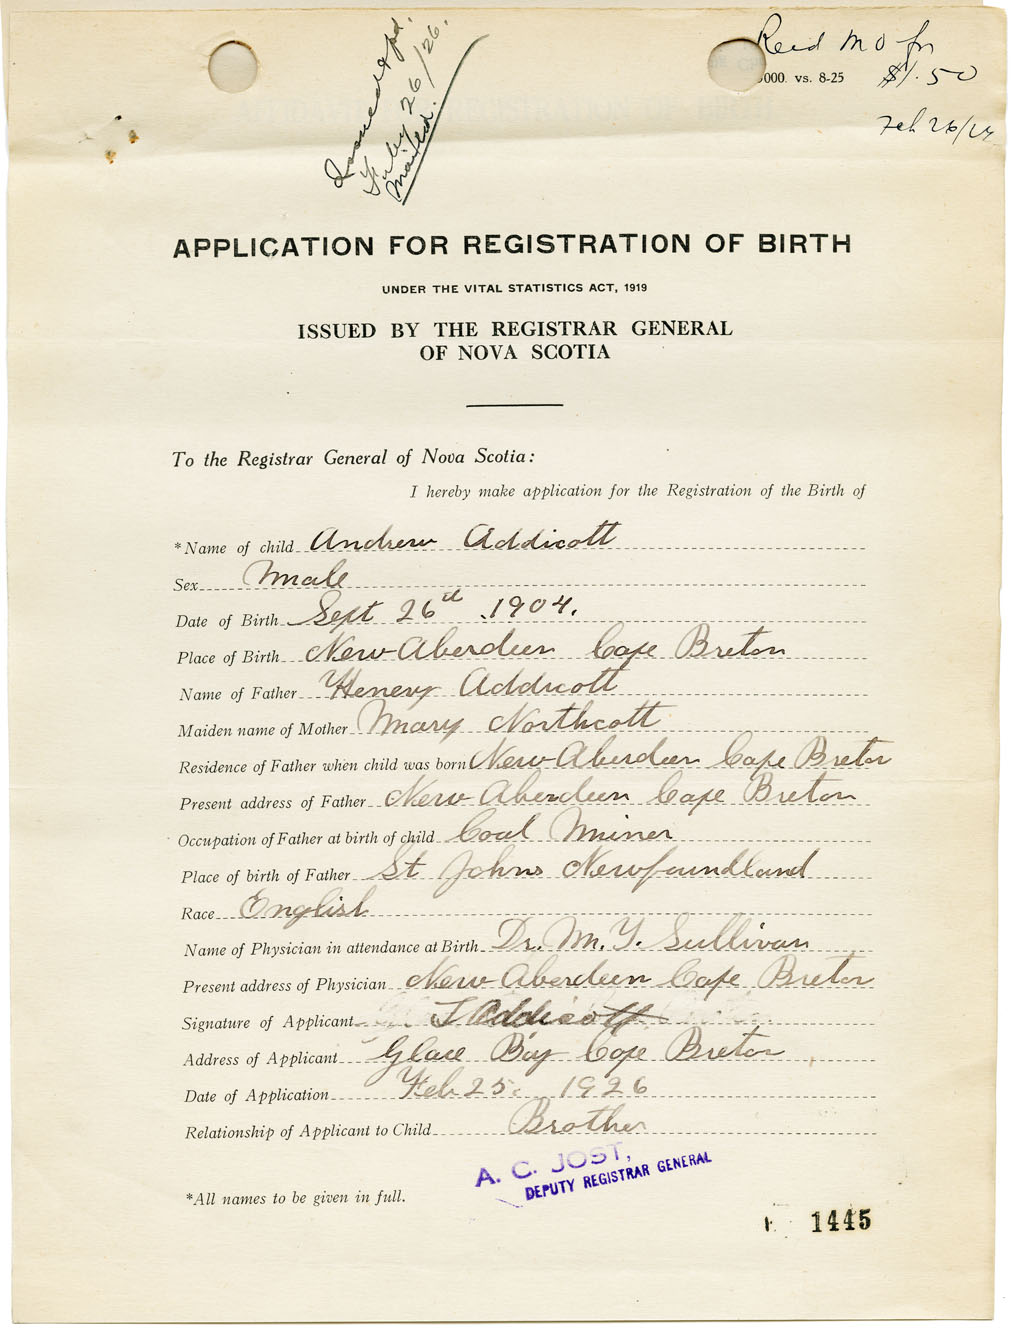 Issued & pd.
Feby 26/26.
Mailed.
Recd M O for
000. vs. 8-25 $1.50
Feb 26/26
APPLICATION FOR REGISTRATION OF BIRTH
UNDER THE VITAL STATISTICS ACT, 1919
ISSUED BY THE REGISTRAR GENERAL
OF NOVA SCOTIA
To the Registrar General of Nova Scotia:
I hereby make application for the Registration of the Birth of
*Name of child Andrew Addicott
Sex Male
Date of Birth Sept 26th .1904.
Place of Birth New Aberdeen Cape Breton
Name of Father Henery Addicott
Maiden name of Mother Mary Northcott
Residence of Father when child was born New Aberdeen Cape Breton
Present address of Father New Aberdeen Cape Breton
Occupation of Father at birth of child Coal Miner
Place of birth of Father St Johns Newfoundland
Race English
Name of Physician in attendance at Birth Dr. M. Y. Sullivan
Present address of Physician New Aberdeen Cape Breton
Signature of Applicant Addicott
Address of Applicant Glace Bay Cape Breton
Date of Application Feb 25. 1926
Relationship of Applicant to Child Brother
A. C. JOST,
DEPUTY REGISTRAR GENERAL
*All names to be given in full.
1445